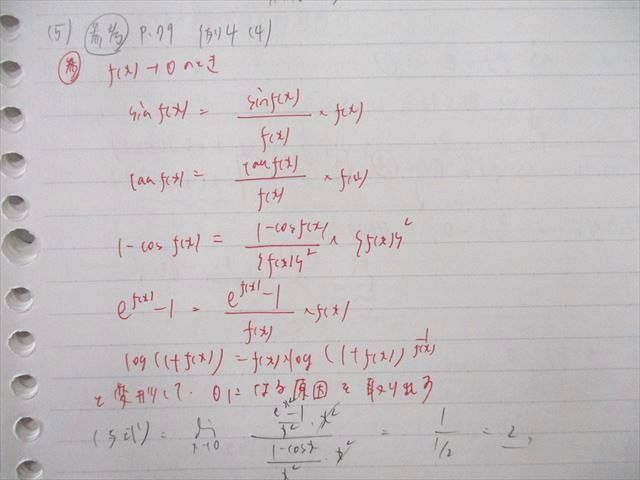 (5) P.79 例4 (4)
f(x)→0 のとき
sin f(x) = sin f(x) / f(x) × f(x)
tan f(x) = tan f(x) / f(x) × f(x)
1-cos f(x) = 1-cos f(x) / {f(x)}² × {f(x)}²
e^f(x) -1 = e^f(x) -1 / f(x) × f(x)
log(1+f(x)) = f(x) × log(1+f(x))^1/f(x)
と変形して、0になる原因を取りれる
(与式) = lim x→0 e^x² -1 / x² · x² / 1-cosx / x² · x² = 1 / 1/2 = 2,